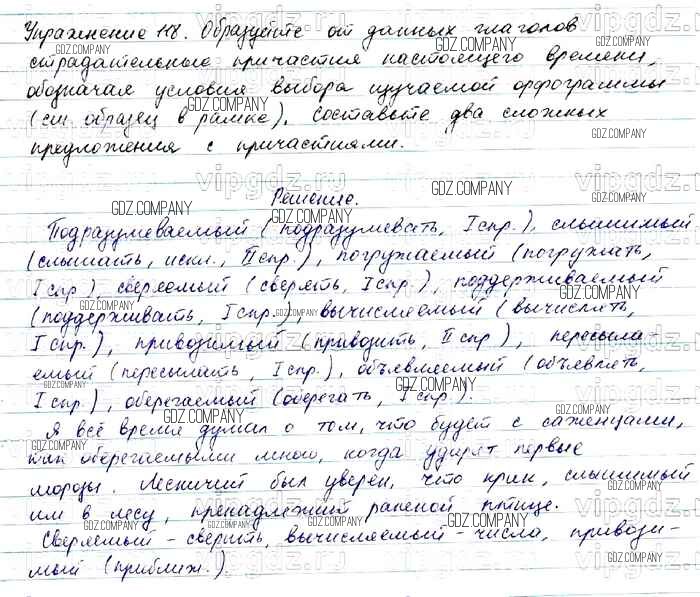 Упражнение 118. Образуйте от данных глаголов
страдательные причастия настоящего времени,
обозначая условия выбора изучаемой орфограммы
(см. образец в рамке). Составьте два сложных
предложения с причастиями.
Решение.
Подразумеваемый (подразумевать, I спр.), слышимый
(слышать, искл., II спр.), погружаемый (погружать,
I спр.), сверяемый (сверять, I спр.), поддерживаемый
(поддерживать, I спр.), вычисляемый (вычислять,
I спр.), приводимый (приводить, II спр.), пересыла-
емый (пересылать, I спр.), объявляемый (объявлять,
I спр.), оберегаемый (оберегать, I спр.).
Я всё время думал о том, что будет с саженцами,
так оберегаемыми мною, когда ударят первые
морозы. Лесничий был уверен, что крик, слышимый
им в лесу, принадлежит раненой птице.
Сверяемый - сверить, вычисляемый - числа, приводи-
мый (приближ.).
vipgdz.ru
GDZ.COMPANY